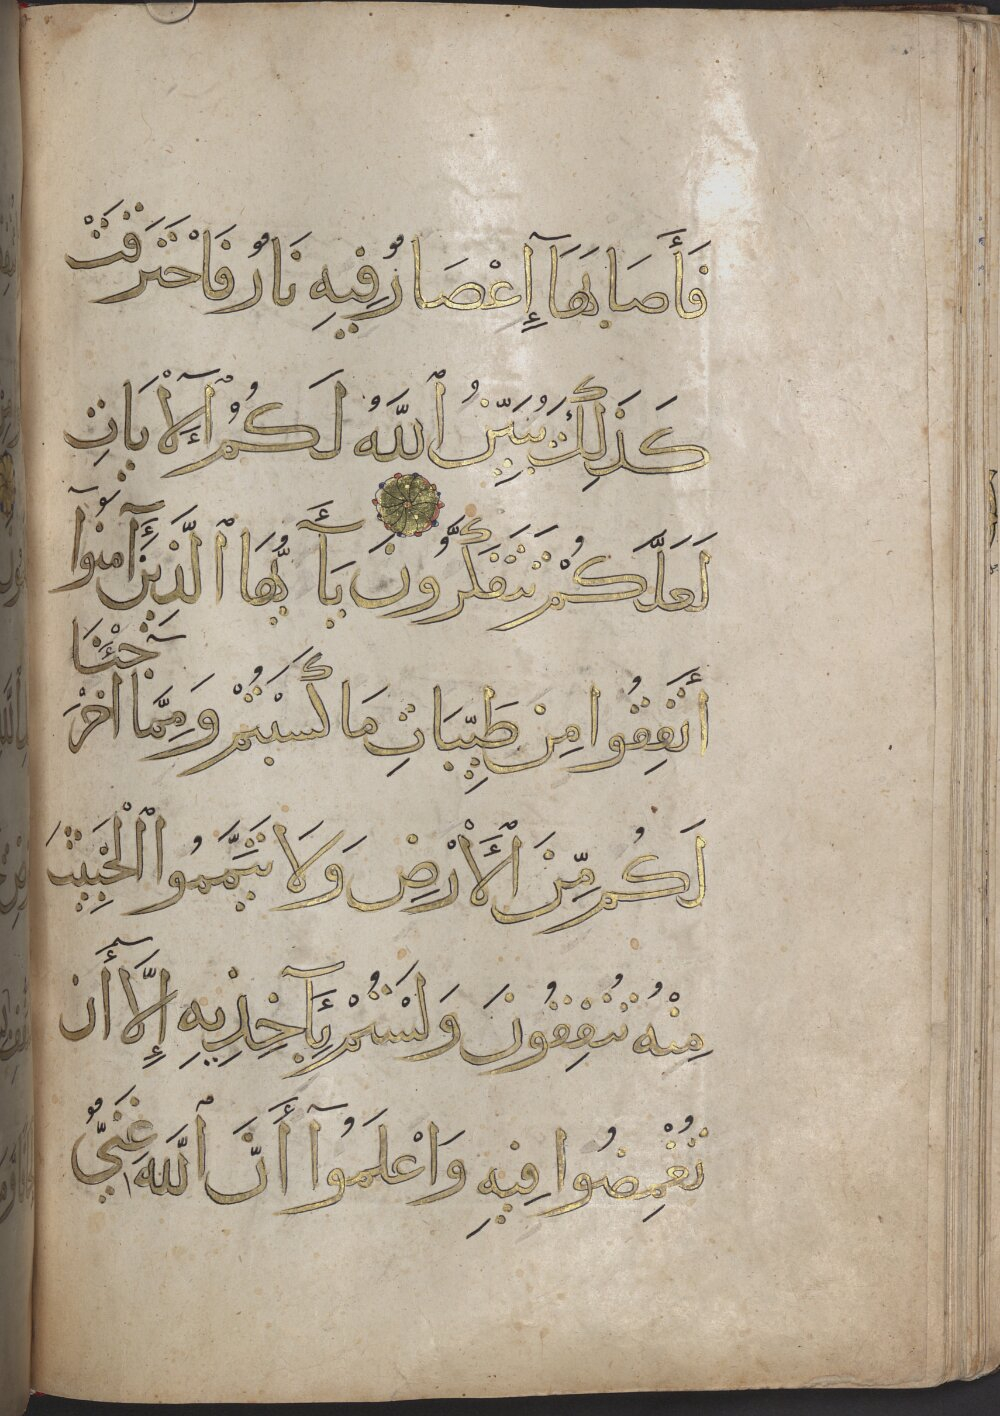 فَأَصَابَهَآ إِعْصَارٌ فِيهِ نَارٌ فَاحْتَرَقَتْ
كَذَٰلِكَ يُبَيِّنُ ٱللَّهُ لَكُمُ ٱلْآيَاتِ
لَعَلَّكُمْ تَتَفَكَّرُونَ يَآ أَيُّهَا ٱلَّذِينَ آمَنُوٓا
أَنْفِقُوا مِن طَيِّبَاتِ مَا كَسَبْتُمْ وَمِمَّا أَخْرَجْنَا
لَكُم مِّنَ ٱلْأَرْضِ وَلَا تَيَمَّمُوا ٱلْخَبِيثَ
مِنْهُ تُنفِقُونَ وَلَسْتُمْ بِآخِذِيهِ إِلَّآ أَن
تُغْمِضُوا فِيهِ وَاعْلَمُوآ أَنَّ ٱللَّهَ غَنِيٌّ